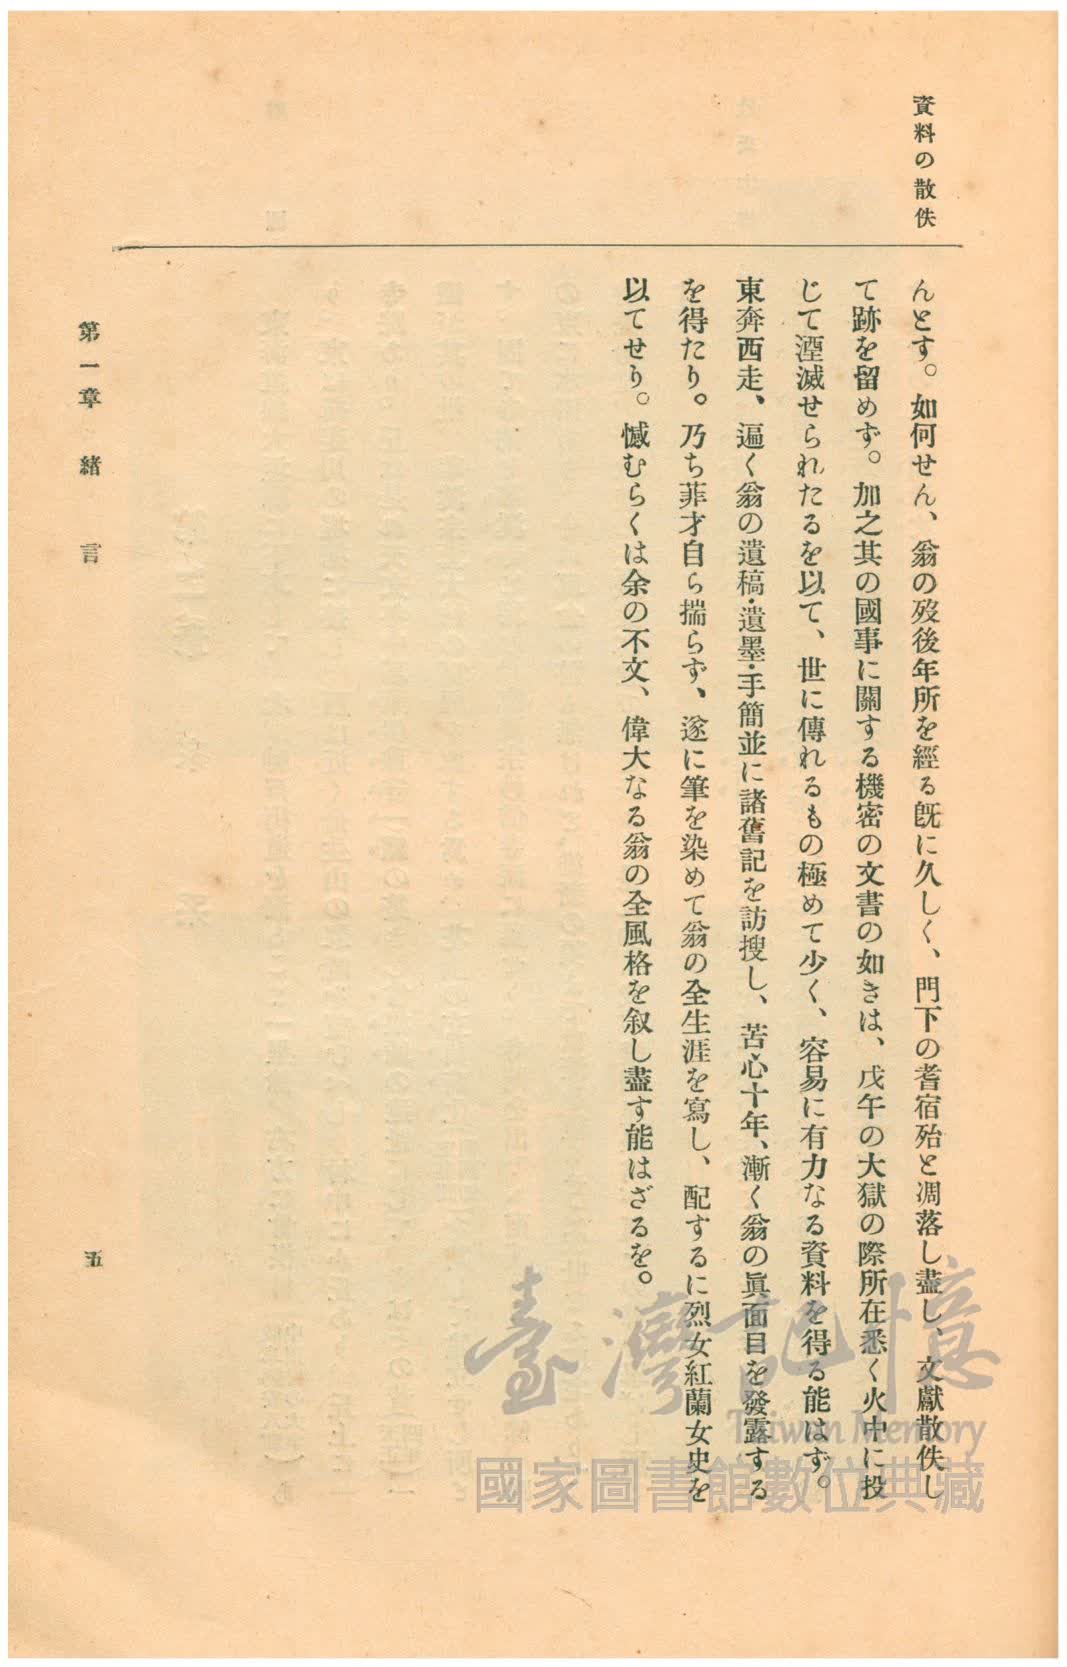 資料の散佚
んとす。如何せん、翁の歿後年所を經る既に久しく、門下の耆宿殆と凋落し盡し、文獻散佚し
て跡を留めず。加之其の國事に關する機密の文書の如きは、戊午の大獄の際所在悉く火中に投
じて湮滅せられたるを以て、世に傳れるもの極めて少く、容易に有力なる資料を得る能はず。
東奔西走、遍く翁の遺稿・遺墨・手簡並に諸舊記を訪搜し、苦心十年、漸く翁の眞面目を發露する
を得たり。乃ち菲才自ら揣らず、遂に筆を染めて翁の全生涯を寫し、配するに烈女紅蘭女史を
以てせり。憾むらくは余の不文、偉大なる翁の全風格を叙し盡す能はざるを。
第一章 緒言
五
臺灣記憶
Taiwan Memory
國家圖書館數位典藏